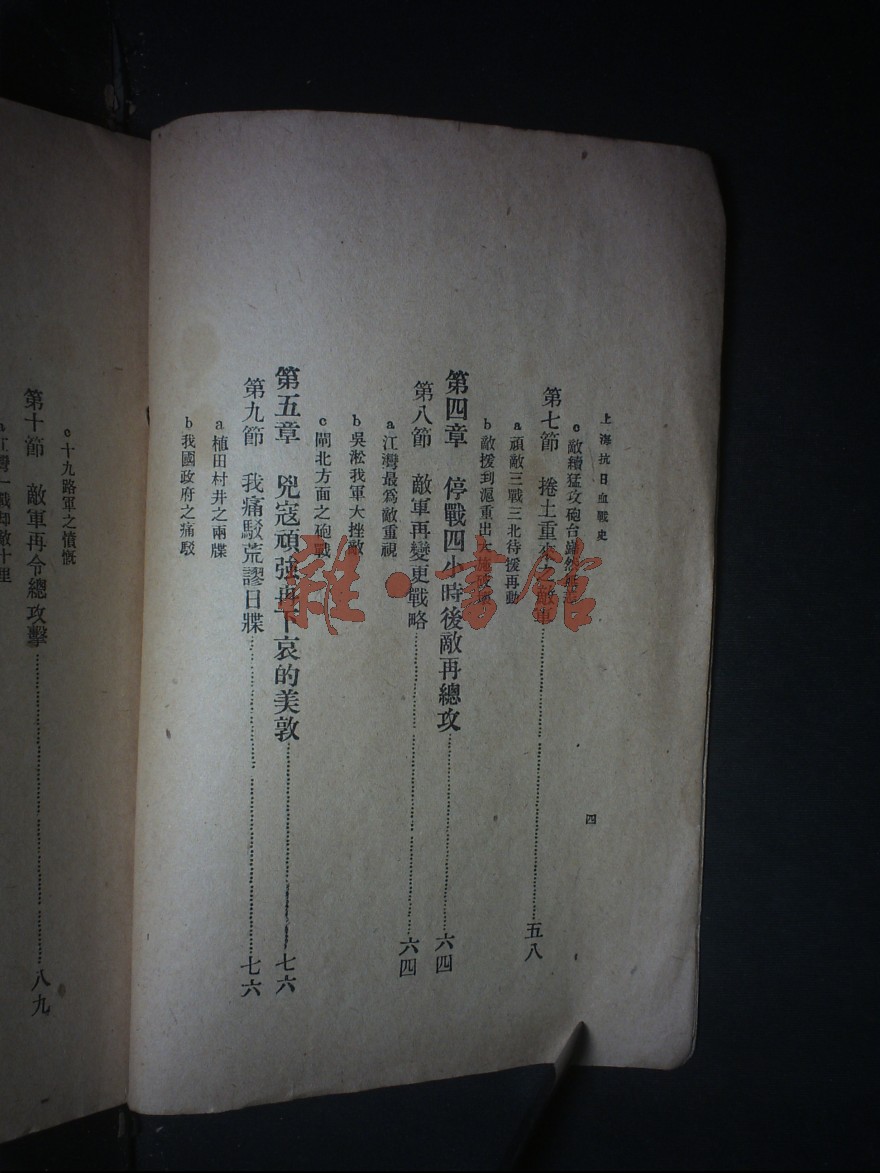 上海抗日血戰史
四
c 敵續猛攻砲台巋然
第七節　捲土重來之敵軍……五八
a 頑敵三戰三北待援再動
b 敵援到滬重出大施
第四章　停戰四小時後敵再總攻……六四
第八節　敵軍再變更戰略……六四
a 江灣最為敵重視
b 吳淞我軍大挫敵
c 閘北方面之砲戰
第五章　兇寇頑強再下哀的美敦……七六
第九節　我痛駁荒謬日牒……七六
a 植田村井之兩牒
b 我國政府之痛駁
c 十九路軍之憤慨
第十節　敵軍再令總攻擊……八九
a 江灣一戰却敵十里
雜·書館